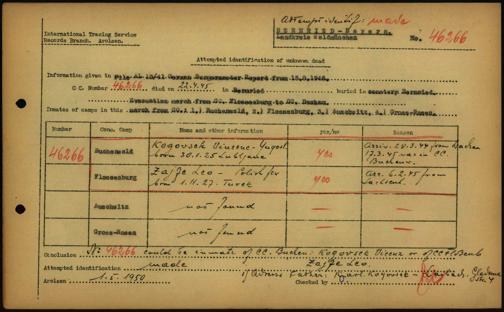 Attempt identif: made
International Tracing Service
Records Branch. Arolsen.
No. 46266
Attempted identification of unknown dead
Information given in File AL 10/41 German Burgermaster Report from 15.8.1946.
C.C. Number 46266 died on 22.4.45 in Bernried buried in cemetery Bernried.
Evacuation march from CC. Flossenburg to CC. Dachau.
Inmates of camps in this march from CC. 1.) Buchenwald, 2.) Flossenburg, 3.) Auschwitz, 4.) Gross-Rosen.
Number Conc. Camp Name and other information yes/no Reason
46266 Buchenwald Kogovsek Vincenc - Yugosl. born 30.1.25 Ljubljana yes Arriv. 24.3.44 from Dachau
17.3.45 was in CC. Buchenw.
Flossenburg Zajfe Leo - Polish Jew born 1.11.27. Turek yes Arr. 6.2.45 from
Auschwitz not found
Gross-Rosen not found
Conclusion Nr 46266 could be inmate of CC. Buchen. Kogovsek Vicenz or of CC Flossenb
Zajfe Leo.
Attempted identification made
Arolsen 1.5.1950 Checked by